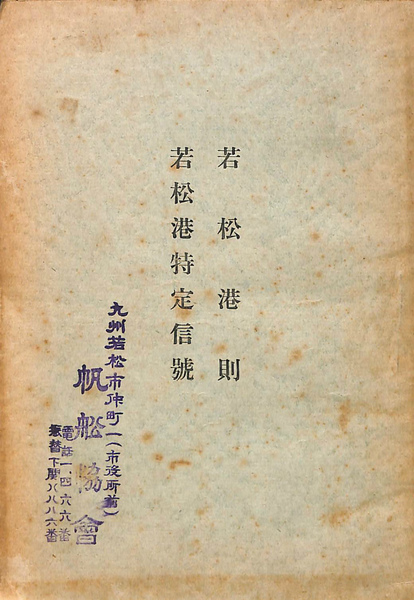 若松港則
若松港特定信號
九州若松市仲町一(市役所前)
帆船協會
電話一、四六六番
振替下関八八八六番